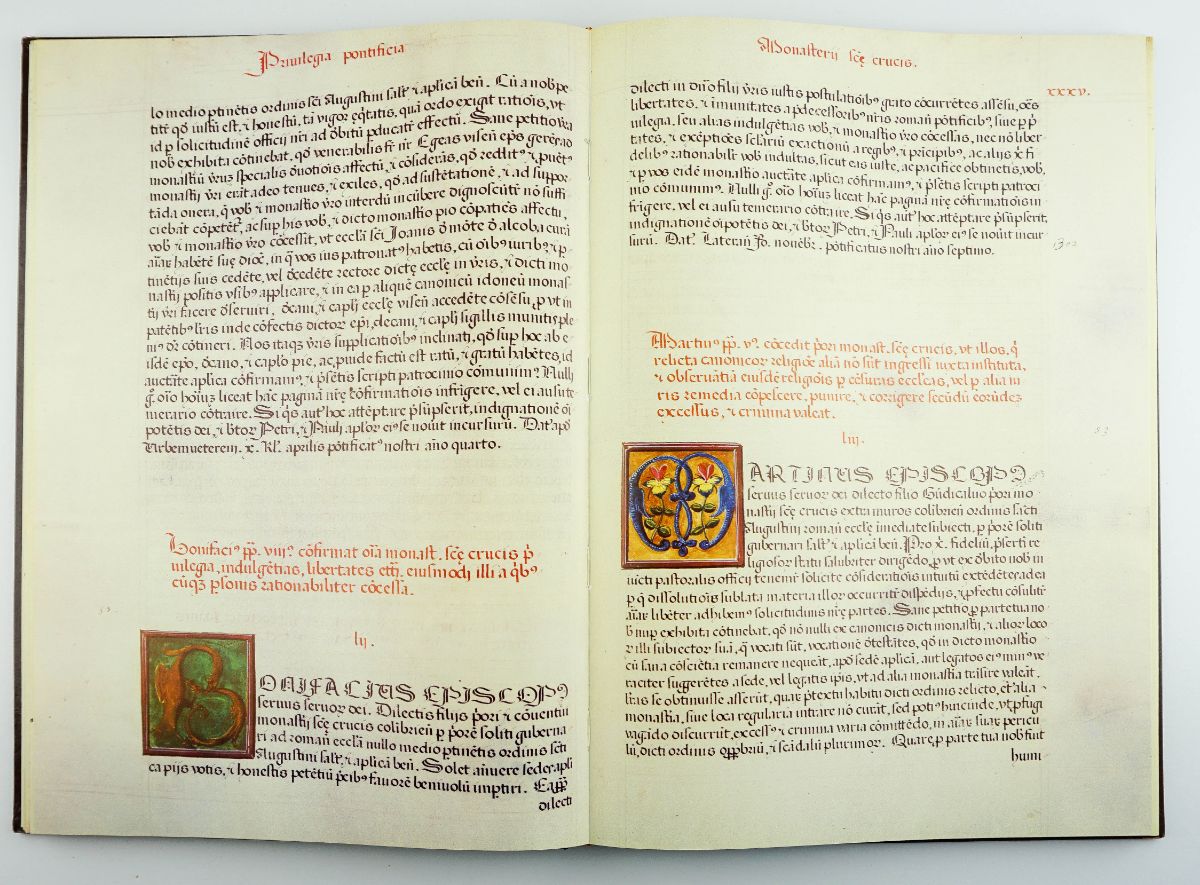 Priuilegia pontificia
lo medio ptinētis ordinis sēi Augustini saƚt̃ ⁊ aplicā ben̄. Cū a nob pe
titr̃ qđ iustū est, ⁊ honestū, tā vigor eq̃tatis, quā ordo exigit ratiōis, vt
id p solicitudinē officij nr̄i ad đbitū pducatr̃ effectū. Sane petitio vr̄a
nob exhibita cōtinebat, qđ venerabilis fr̄ nr̄ Egeas viseñ ep̄s gerēs ad
monastiū vr̄ū specialis đuotiōis affectū, ⁊ cōsiderās, qđ reditꝰ ⁊ puētꝰ
monastij vr̄i erāt adeo tenues, ⁊ exiles, qđ ad sustētationē, ⁊ ad suppor
tāda onera, q̄ vob ⁊ monastio vr̄o interdū incūbere dignoscūtr̃ nō suffi
ciebāt cōpetētr̃, ac sup his vob, ⁊ dicto monastio pio cōpatiēs affectu,
vob ⁊ monastio vr̄o cōcessit, vt eccl̄ā sēi Joanis đ mōte đ alcoba, curā
aīar̃ habētē suę dioc̄, in q̄ vos ius patronatꝰ habetis, cū oībꝰ iuribꝰ, ⁊ p
tinētijs suis cedēte, vel đcedēte rectore dictę eccl̄ę in vr̄is, ⁊ dicti mo
nastij positis vsibꝰ applicare, ⁊ in ea p aliquē canonicū idoneū monas
tij vr̄i facere đseruiri, đcani, ⁊ capl̄j eccl̄ę viseñ accedēte cōsēsu, p vt in
patētibꝰ lr̄is inde cōfectis dictor̃ ep̄i, decani, ⁊ capl̄j sigillis munitis ple
niꝰ dr̄ cōtineri. Nos itaq̃ vr̄is supplicatiōibꝰ inclinati, qđ sup hoc ab e
isdē ep̄o, đcano, ⁊ capl̄o pie, ac puide factū est ratū, ⁊ gratū habētes, id
auctāte aplica cōfirmamꝰ, ⁊ p̄sētis scripti patrocinio comunimꝰ. Nulli
g̊. oīo hoīuȝ liceat hāc paginā nr̄ę cōfirmatiōis infrigere, vel ei ausu te
merario cōtraire. Si q̄s autȝ hoc attēptare p̄sūpserit, indignationē oī
potētis dei, ⁊ btor̃ Petri, ⁊ Pauli aplor̃ eiꝰ se nouit incursurū. Datȝ apđ
Vrbemueterem. x. Kl̄. aprilis pōtificatꝰ nostri año quarto.
Bonifaciꝰ pp̄. viiiꝰ. cōfirmat oīa monast. scę̄ crucis p̄
uilegia, indulgētias, libertates etꝭ. eiusmōdi illi a q̄bꝰ
cūqȝ psonis rationabiliter cōcessa.
lij.
BONIFACIUS EPISCOPꝰ
seruus seruor̃ dei. Dilectis filijs p̄ori ⁊ cōuentui
monastij scę̄ crucis colibrieñ p p̄orē soliti guberna
ri ad romañ eccl̄ā nullo medio ptinētis ordinis sēti
Augustini saƚt̃, ⁊ aplicā ben̄. Solet añuere sedes apli
ca pijs votis, ⁊ honestis petētiū p̄cibꝰ fauorē beniuolū impertiri. Eapp̄
dilecti
Monasterij scę̄ crucis.
xxxv.
dilecti in dn̄o filij vr̄is iustis postulatiōibꝰ grato cōcurrētes assēsu, oēs
libertates, ⁊ imunitates a p̄decessoribꝰ nr̄is romañ pōtificibꝰ, siue p p̄
uilegia, seu alias indulgētias vob, ⁊ monastio vr̄o cōcessas, nec nō liber
tates, ⁊ exēptiões seclariū exactionū a regibꝰ, ⁊ p̄ncipibꝰ, ac alijs x̄ fi
delibꝰ rationabilr̃ vob indultas, sicut eas iuste, ac pacifice obtinetis, vob,
⁊ p vos eidē monastio auctāte aplica cōfirmamꝰ, ⁊ p̄sētis scripti patroci
nio cōmunimꝰ. Nulli g̊. oīo hoīuȝ liceat hāc paginā nr̄ę cōfirmatiōis in
frigere, vel ei ausu temerario cōtraire. Si q̄s autȝ hoc attēptare p̄sūpserit,
indignationē oīpotētis dei, ⁊ btor̃ Petri, ⁊ Pauli aplor̃ eiꝰ se nouit incur
surū. Datȝ. Laterañ. Jđ. nouēbr̃. pōtificatus nostri año septimo.
Martinꝰ pp̄. vꝰ. cōcedit p̄ori monast. scę̄ crucis, vt illos, q̄
relicta canonicor̃ religiōe aliā nō sūt ingressi iuxta instituta,
⁊ obseruātiā eiusdē religiōis p cēsuras eccl̄eas, vel p alia iu
ris remedia cōpescere, punire, ⁊ corrigere secūdū eorūdeȝ
excessus, ⁊ crimina valeat.
liij.
MARTINUS EPISCOPꝰ
seruus seruor̃ dei dilecto filio Gūdicaluo p̄ori mo
nastij scę̄ crucis extra muros colibrieñ ordinis sācti
Augustini romañ eccl̄ę imediate subiecti, p p̄orē soliti
gubernari saƚt̃ ⁊ aplicā ben̄. Pro x̄. fideliū, p̄serti re
ligiosor̃ statu salubriter dirigēdo, p vt ex đbito nob in
iūcti pastoralis officij tenemr̃ solicite cōsideratiōis intuitū extēdētes ad ei
p q̄ dissolutiōis sublata materia illor̃ occurritr̃ dispēdijs, ⁊ pfectui cōsulitr̃
aīar̃, libēter adhibemꝰ solicitudinis nr̄ę partes. Sane petitio p parte tua no
b nup exhibita cōtinebat, qđ nō nulli ex canonicis dicti monastij, ⁊ alior̃ loco
r̃ illi subiector̃ suā, q̄ vocati sūt, vocationē đtestātes, qđ in dicto monastio
cū sana cōsciētia remanere nequeāt, apđ sedē aplicā, aut legatos eiꝰ minꝰ ve
raciter suggerētes a sede, vel legatis ip̄is, vt ad alia monastia trāsire valeāt,
lr̄as se obtinuisse asserūt, quar̃ p̄textu habitu dicti ordinis relicto, et alia
monastia, siue loca regularia intrare nō curāt, sed potiꝰ huc inde, vt p̄fugi
vagādo discurrūt, excessꝰ ⁊ crimina varia comittēdo, in aīar̃ suar̃ pericu
lū, dicti ordinis opp̄briū, ⁊ scādalū plurimor̃. Quare, p parte tua nob fuit
humi